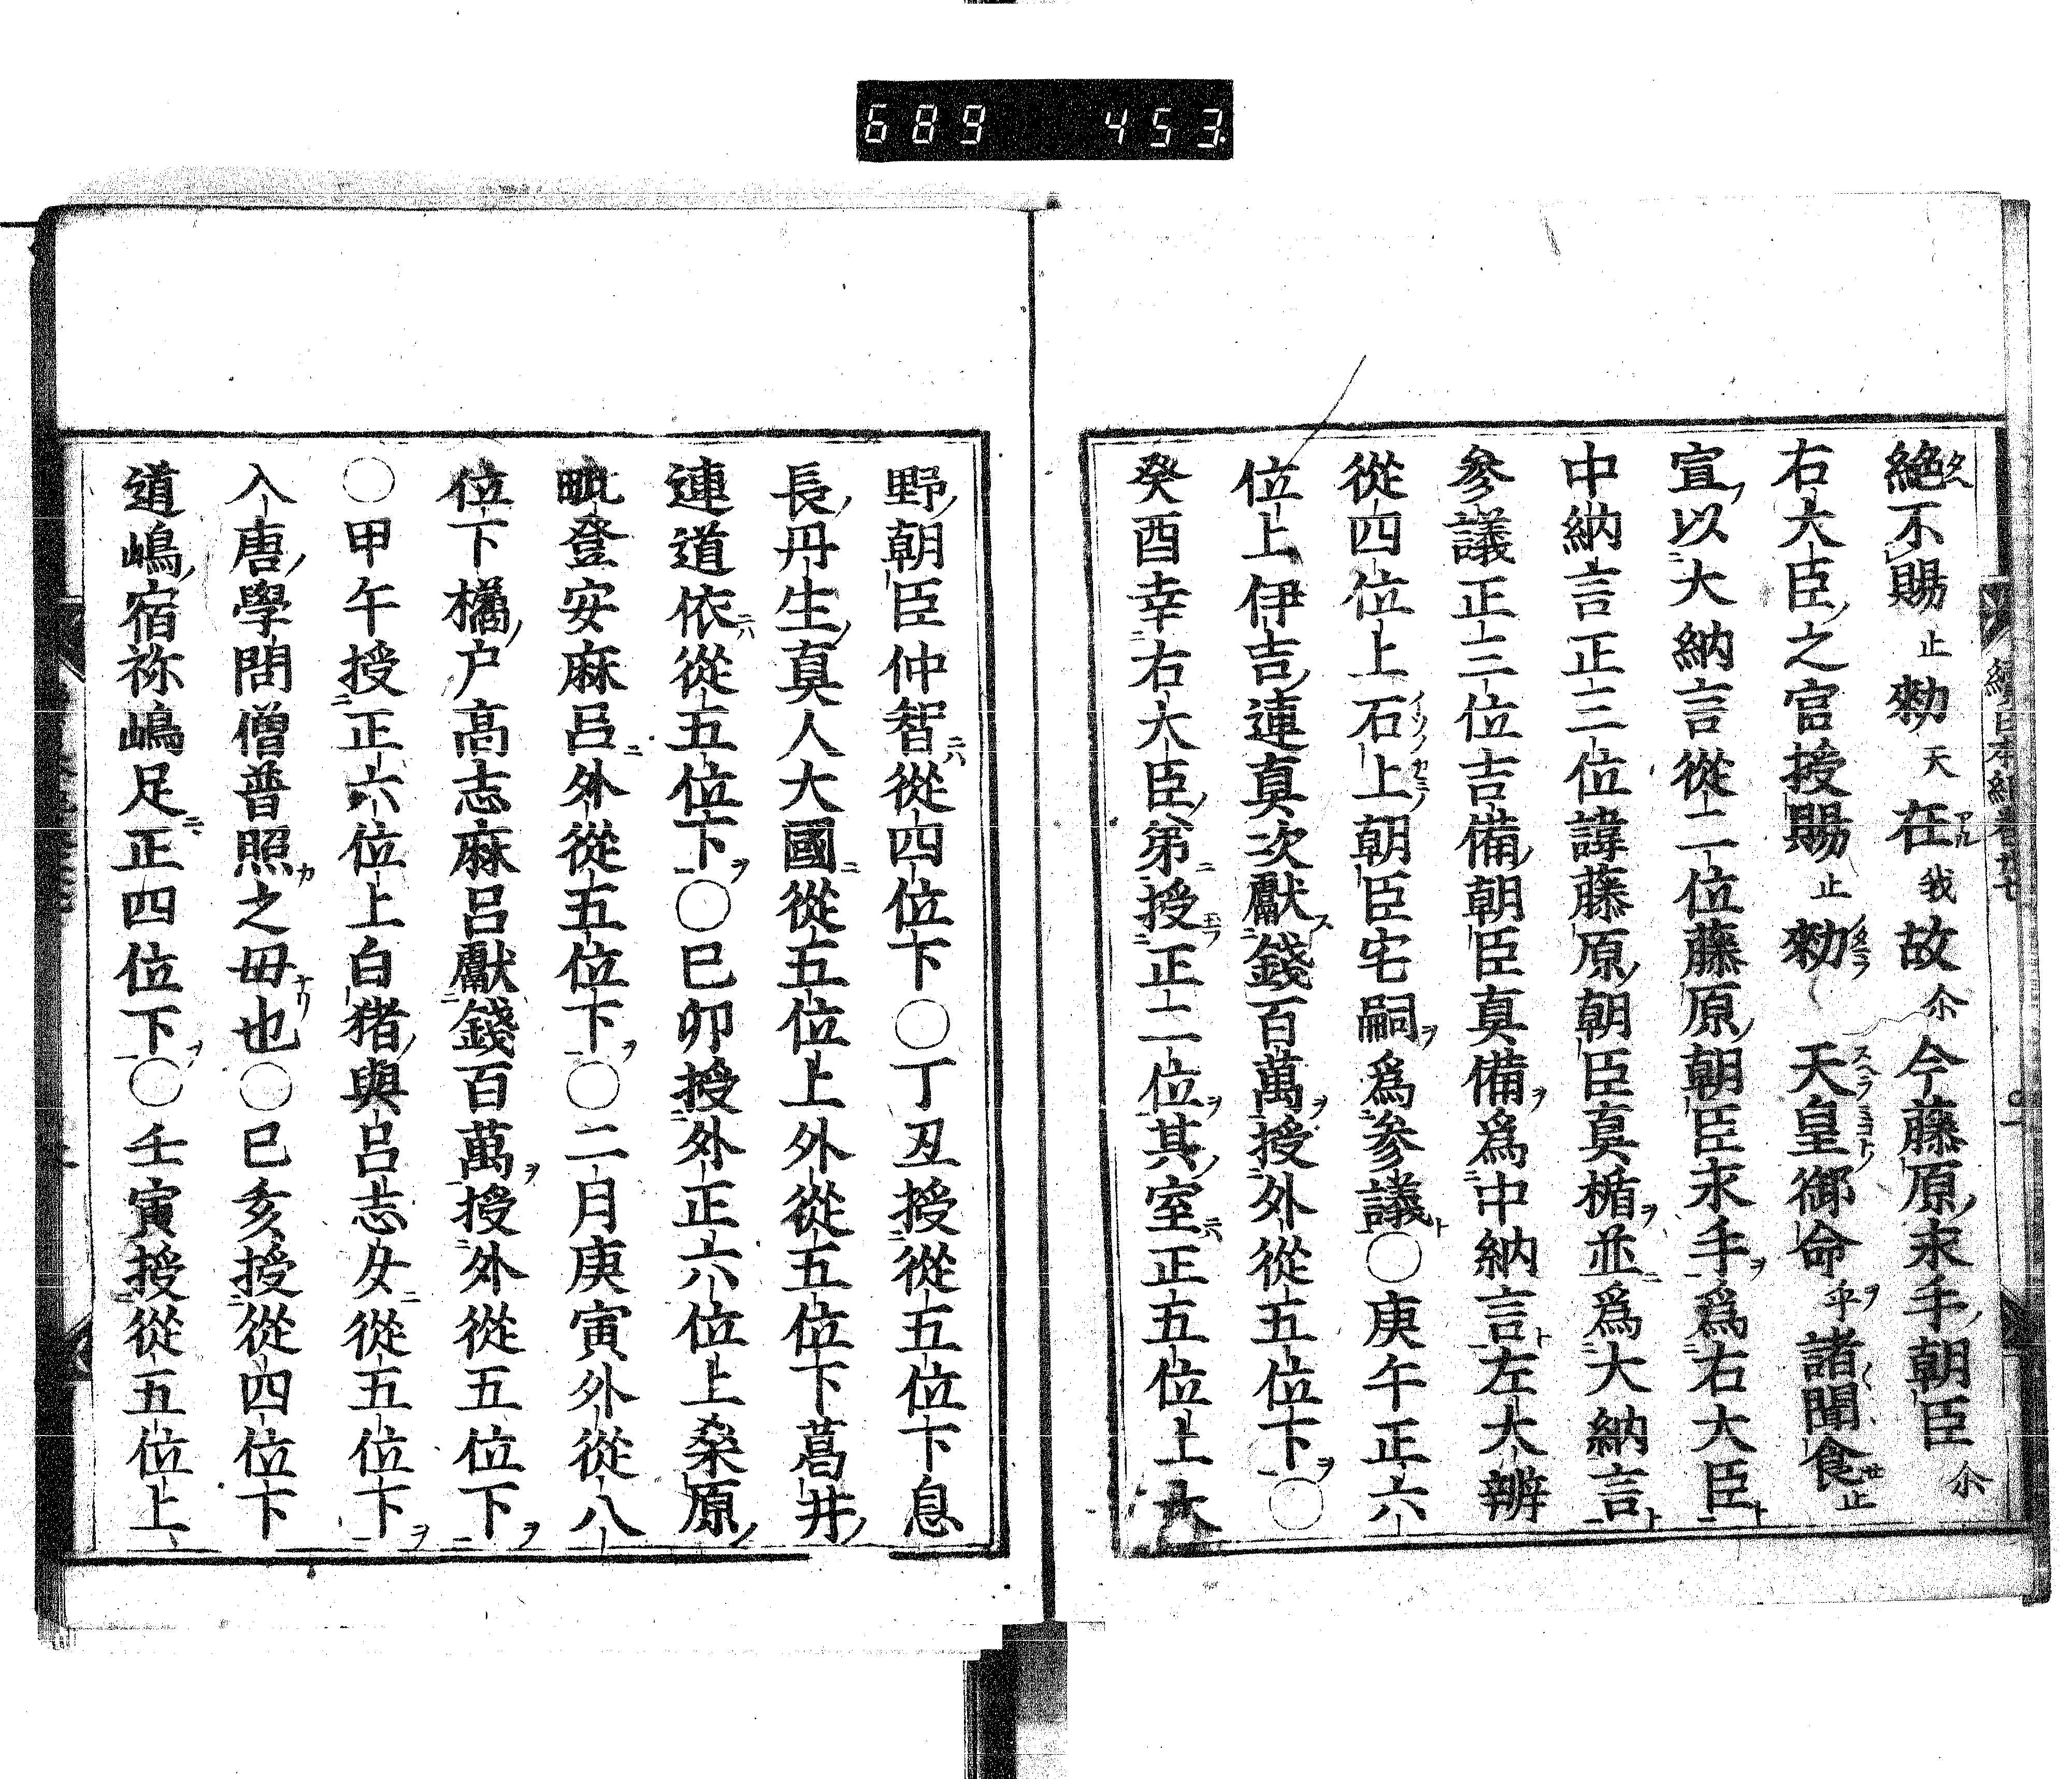 689 453
絶不賜止勑天在我故尒今藤原永手朝臣尒
右大臣之官授賜止勑天皇御命乎諸聞食世止
宣以大納言從二位藤原朝臣永手爲右大臣
中納言正三位諱藤原朝臣真楯並爲大納言
參議正三位吉備朝臣真備爲中納言左大辨
從四位上石上朝臣宅嗣爲參議○庚午正六
位上伊吉連真次獻錢百萬授外從五位下○
癸酉幸右大臣第授正二位其室正五位上大
野朝臣仲智從四位下○丁丑授從五位下息
長丹生真人大國從五位上外從五位下葛井
連道依從五位下○己卯授外正六位上桑原
毗登安麻呂外從五位下○二月庚寅外從八
位下橘户高志麻呂獻錢百萬授外從五位下
○甲午授正六位上白猪與呂志女從五位下
入唐學問僧普照之母也○己亥授從四位下
道嶋宿祢嶋足正四位下○壬寅授從五位上